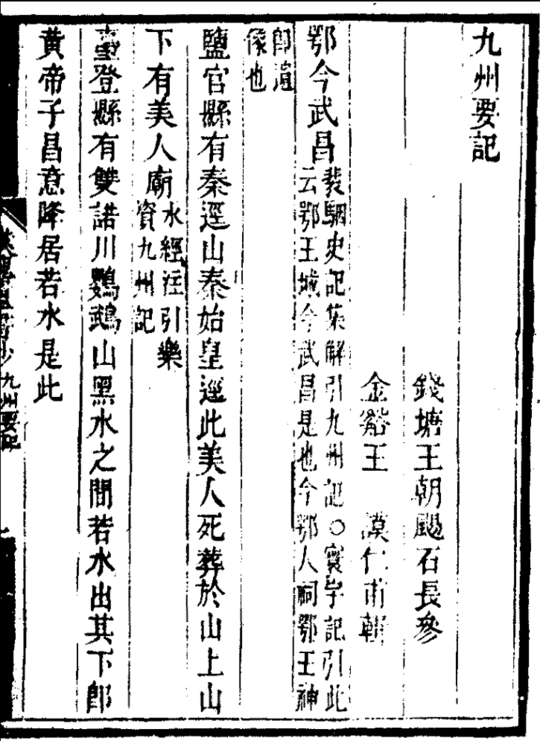 九州要記
錢塘王朝𩗗石長參
金谿王謨仁甫輯
鄂今武昌裴駰史記集解引九州記○寰宇記引此
云鄂王城今武昌是也今鄂人祠鄂王神
即遺
像也
鹽官縣有秦逕山秦始皇逕此美人死葬於山上山
下有美人廟水經注引樂
資九州記
臺登縣有雙諾川鸚鵡山黑水之間若水出其下即
黃帝子昌意降居若水是此
九州要記